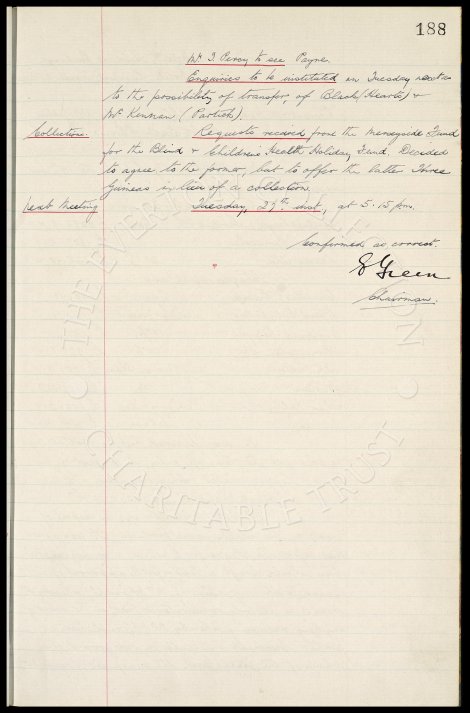 188
Mr. T. Percy to see Payne.
Enquiries to be instituted on Tuesday next as
to the possibility of transfer, of Black (Hearts) &
McKennan (Partick).
Collections. Requests received from the Merseyside Fund
for the Blind & Children's Health Holiday Fund. Decided
to agree to the former, but to offer the latter Three
Guineas in lieu of a collection.
Next Meeting Tuesday, 27th inst., at 5.15 pm.
Confirmed as correct.
E Green
Chairman.
THE EVERTON
COLLECTION
CHARITABLE TRUST